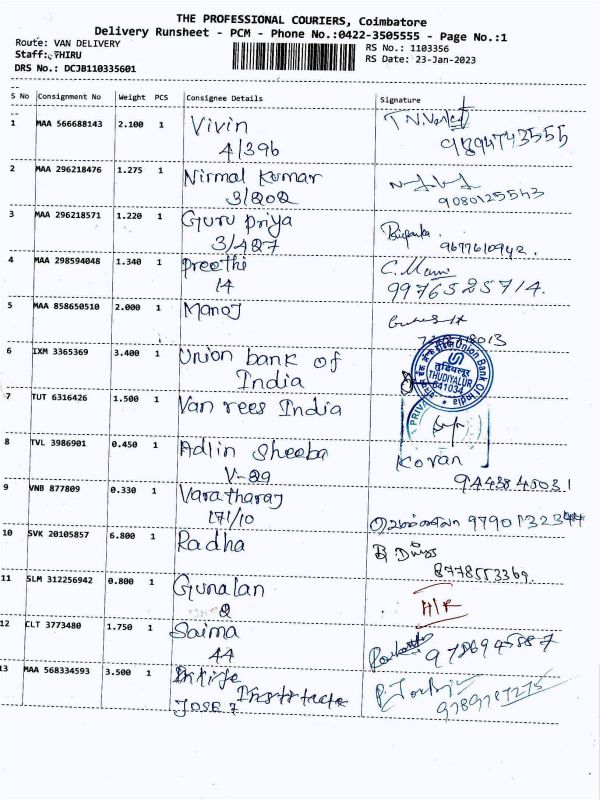 THE PROFESSIONAL COURIERS, Coimbatore
Delivery Runsheet - PCM - Phone No.:0422-3505555 - Page No.:1
Route: VAN DELIVERY
RS No.: 1103356
Staff: THIRU
RS Date: 23-Jan-2023
DRS No.: DCJB110335601
S No Consignment No Weight PCS Consignee Details Signature
1 MAA 566688143 2.100 1 Vivin
4/396 9894743555
2 MAA 296218476 1.275 1 Nirmal Kumar
3/202 9080125543
3 MAA 296218571 1.220 1 Guru Priya
3/427 9677610942.
4 MAA 298594048 1.340 1 Preethi C. Mani
14 9976525714.
5 MAA 858650510 2.000 1 Manoj
6 IXM 3365369 3.400 1 Union bank of
India
Union Bank of India
THUDIYALUR
641034
7 TUT 6316426 1.500 1 Van rees India
8 TVL 3986901 0.450 1 Adlin Sheeba Kovan
V-89
9 VNB 877809 0.330 1 Varatharaj
171/10
10 SVK 20105857 6.800 1 Radha
8778553369.
11 SLM 312256942 0.800 1 Gunalan A/R
2
12 CLT 3773480 1.750 1 Saima
44
13 MAA 568334593 3.500 1
JOSE 7